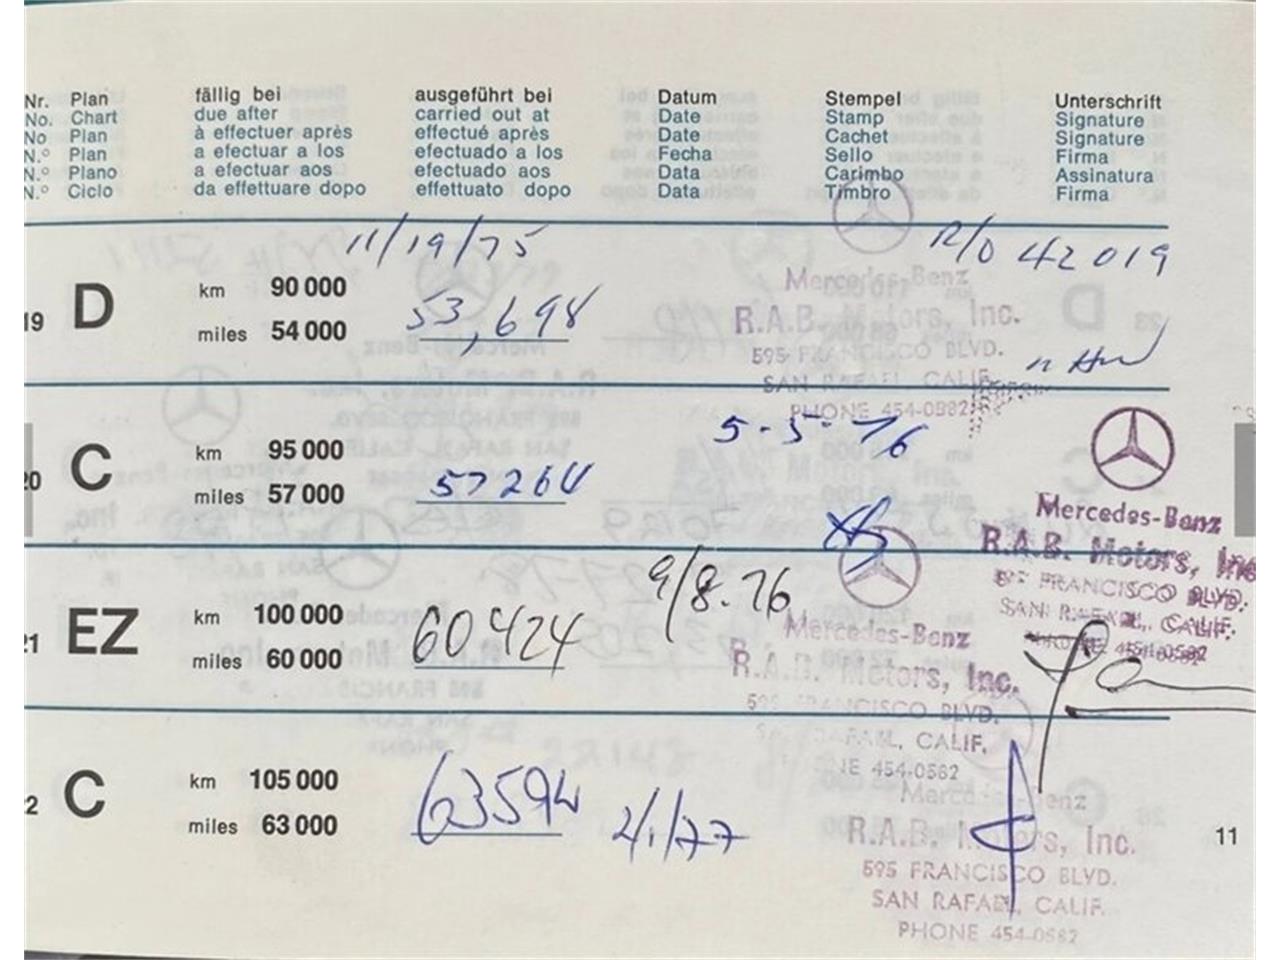 Nr. Plan fällig bei ausgeführt bei Datum Stempel Unterschrift
No. Chart due after carried out at Date Stamp Signature
No Plan à effectuer après effectué après Date Cachet Signature
N.º Plan a efectuar a los efectuado a los Fecha Sello Firma
N.º Plano a efectuar aos efectuado aos Data Carimbo Assinatura
N.º Ciclo da effettuare dopo effettuato dopo Data Timbro Firma
11/19/75 R/O 42019
19 D km 90 000 53,698
miles 54 000
Mercedes-Benz
R.A.B. Motors, Inc.
595 FRANCISCO BLVD.
SAN RAFAEL, CALIF.
PHONE 454-0582
5-5-76
20 C km 95 000 57264
miles 57 000
Mercedes-Benz
R.A.B. Motors, Inc
595 FRANCISCO BLVD.
SAN RAFAEL, CALIF.
PHONE 454-0582
9/8.76
21 EZ km 100 000 60424
miles 60 000
Mercedes-Benz
R.A.B. Motors, Inc.
595 FRANCISCO BLVD.
SAN RAFAEL, CALIF.
PHONE 454-0582
22 C km 105 000 63594
miles 63 000 2/1/77
Mercedes-Benz
R.A.B. Motors, Inc.
595 FRANCISCO BLVD.
SAN RAFAEL, CALIF.
PHONE 454-0582
11